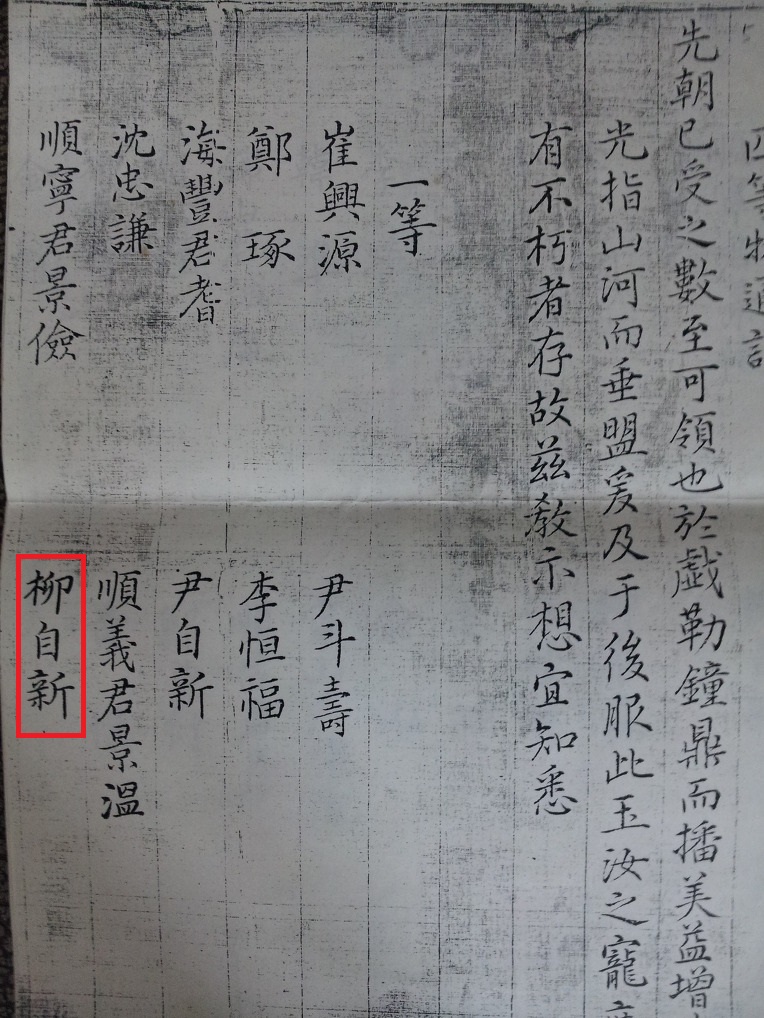 四等物通訓
先朝已受之數至可領也於戲勒鐘鼎而播美益增
光指山河而垂盟爰及于後服此玉汝之寵
有不朽者存故玆敎示想宜知悉
一等
崔興源 尹斗壽
鄭琢 李恒福
海豐君耆 尹自新
沈忠謙 順義君景溫
順寧君景儉 柳自新